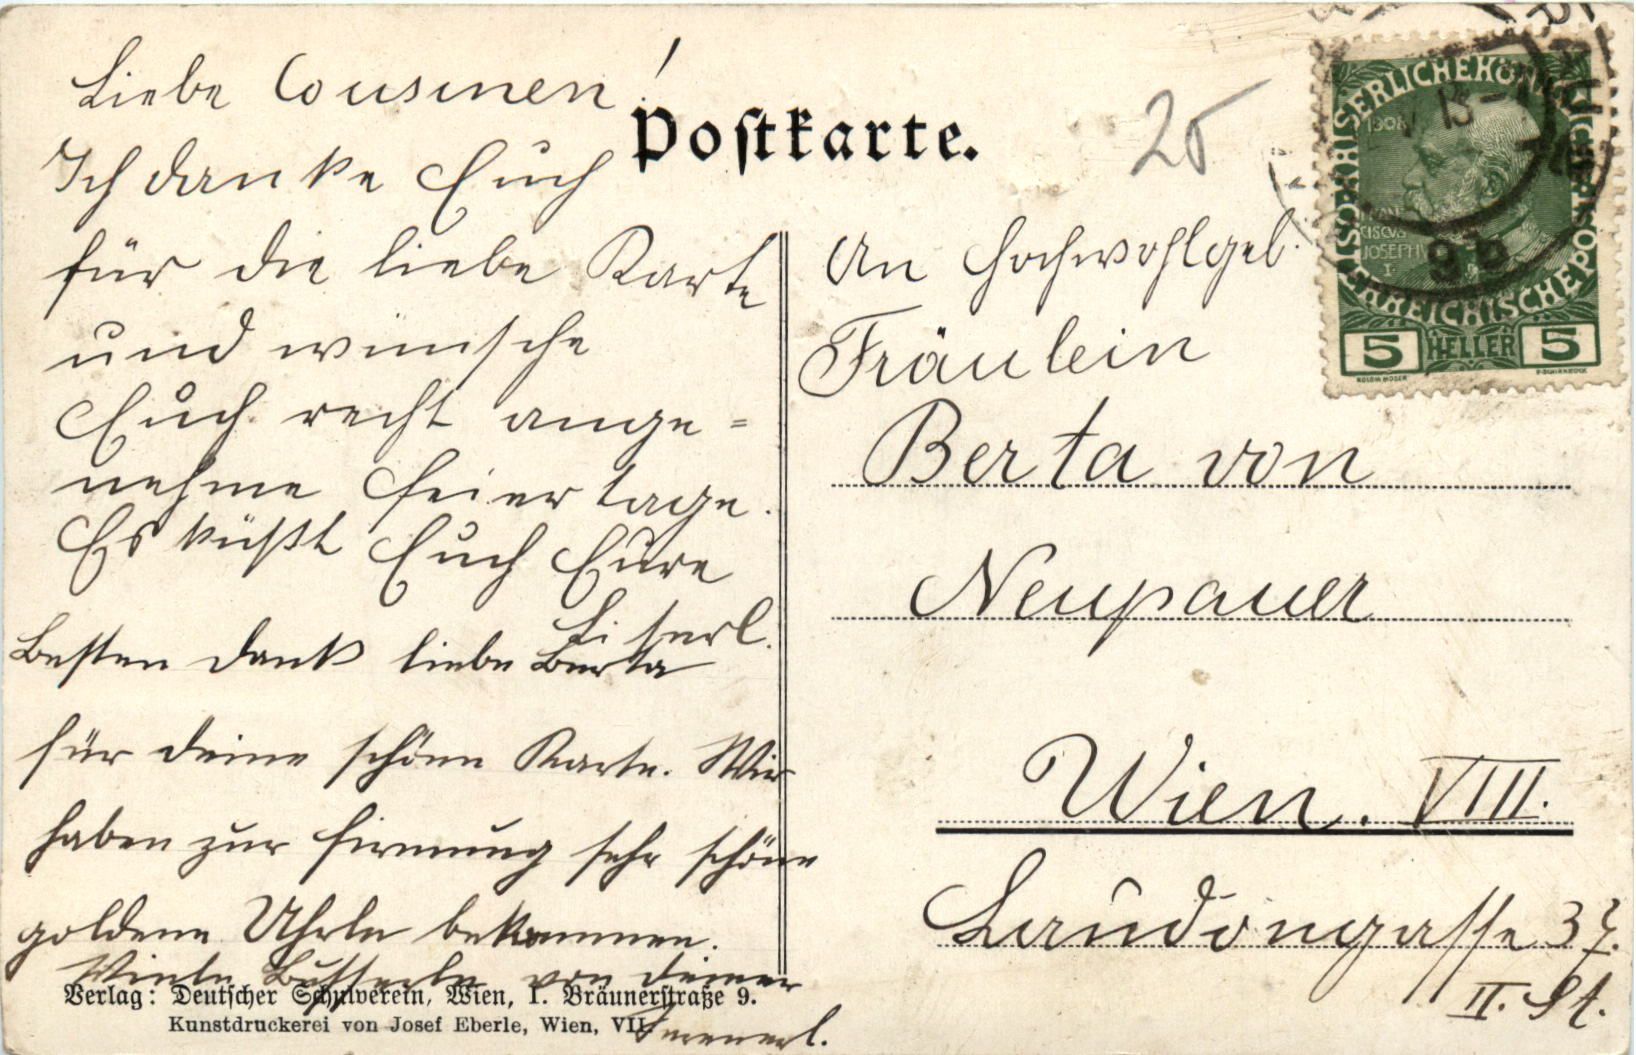 Liebe Cousinen!
Ich danke Euch
für die liebe Karte
und wünsche
Euch recht ange=
nehme Feiertage.
Es küßt Euch Eure
Liserl.
Besten Dank liebe Berta
für deine schöne Karte. Wir
haben zur Firmung sehr schöne
goldene Uhrln bekommen.
Viele Busserln von deiner
Postkarte.
25
An Hochwohlgeb.
Fräulein
Berta von
Neupauer
Wien. VIII.
Laudongasse 37.
II. St.
1908
FRAN
CISCVS
JOSEPH
I
9b
5 HELLER 5
KOLOM MOSER
F. SCHIRNBÖCK
Verlag: Deutscher Schulverein, Wien, I. Bräunerstraße 9.
Kunstdruckerei von Josef Eberle, Wien, VII.